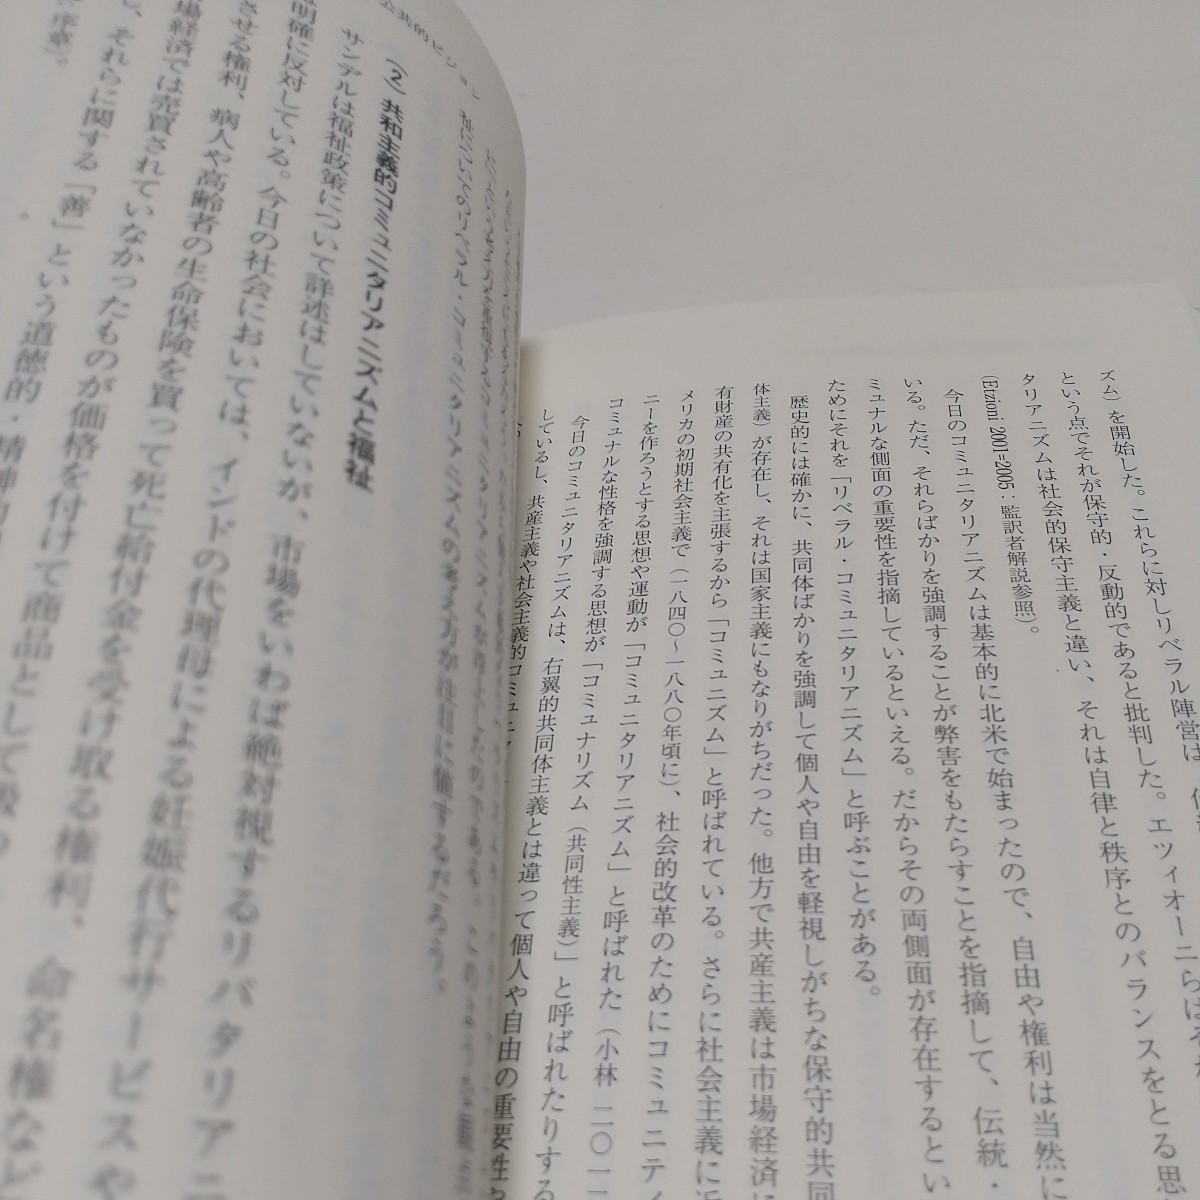 ズム)を開始した。これらに対しリベラル陣営は、
という点でそれが保守的・反動的であると批判した。エツィオーニらは
タリアニズムは社会的保守主義と違い、それは自律と秩序とのバランスをとる思
(Etzioni 2001=2005:監訳者解説参照)。
今日のコミュニタリアニズムは基本的に北米で始まったので、自由や権利は当然に
いる。ただ、それらばかりを強調することが弊害をもたらすことを指摘して、伝統・
ミュナルな側面の重要性を指摘しているといえる。だからその両側面が存在するとい
ためにそれを「リベラル・コミュニタリアニズム」と呼ぶことがある。
歴史的には確かに、共同体ばかりを強調して個人や自由を軽視しがちな保守的共同
体主義)が存在し、それは国家主義にもなりがちだった。他方で共産主義は市場経済に
有財産の共有化を主張するから「コミュニズム」と呼ばれている。さらに社会主義に近
メリカの初期社会主義で(一八四〇~一八八〇年頃に)、社会的改革のためにコミュニティ
ニーを作ろうとする思想や運動が「コミュニタリアニズム」と呼ばれた(小林 二〇一
コミュナルな性格を強調する思想が「コミュナリズム(共同性主義)」と呼ばれたりする
今日のコミュニタリアニズムは、右翼的共同体主義とは違って個人や自由の重要性
しているし、共産主義や社会主義的コミュニ
公共的ビジョン
祉についてのリベラル・コミュニタリアニズムの考え方が注目に値するだろう。
(2) 共和主義的コミュニタリアニズムと福祉
サンデルは福祉政策について詳述はしていないが、市場をいわば絶対視するリバタリアニ
明確に反対している。今日の社会においては、インドの代理母による妊娠代行サービスや
させる権利、病人や高齢者の生命保険を買って死亡給付金を受け取る権利、命名権など
場経済では売買されていなかったものが価格を付けて商品として
し、それらに関する「善」という道徳的・精神的
序章)。